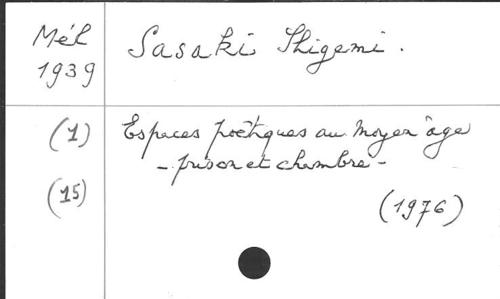 Mél
1939
Sasaki Shigemi.
(1)
Espaces poétiques au Moyen âge
- prison et chambre -
(15)
(1976)